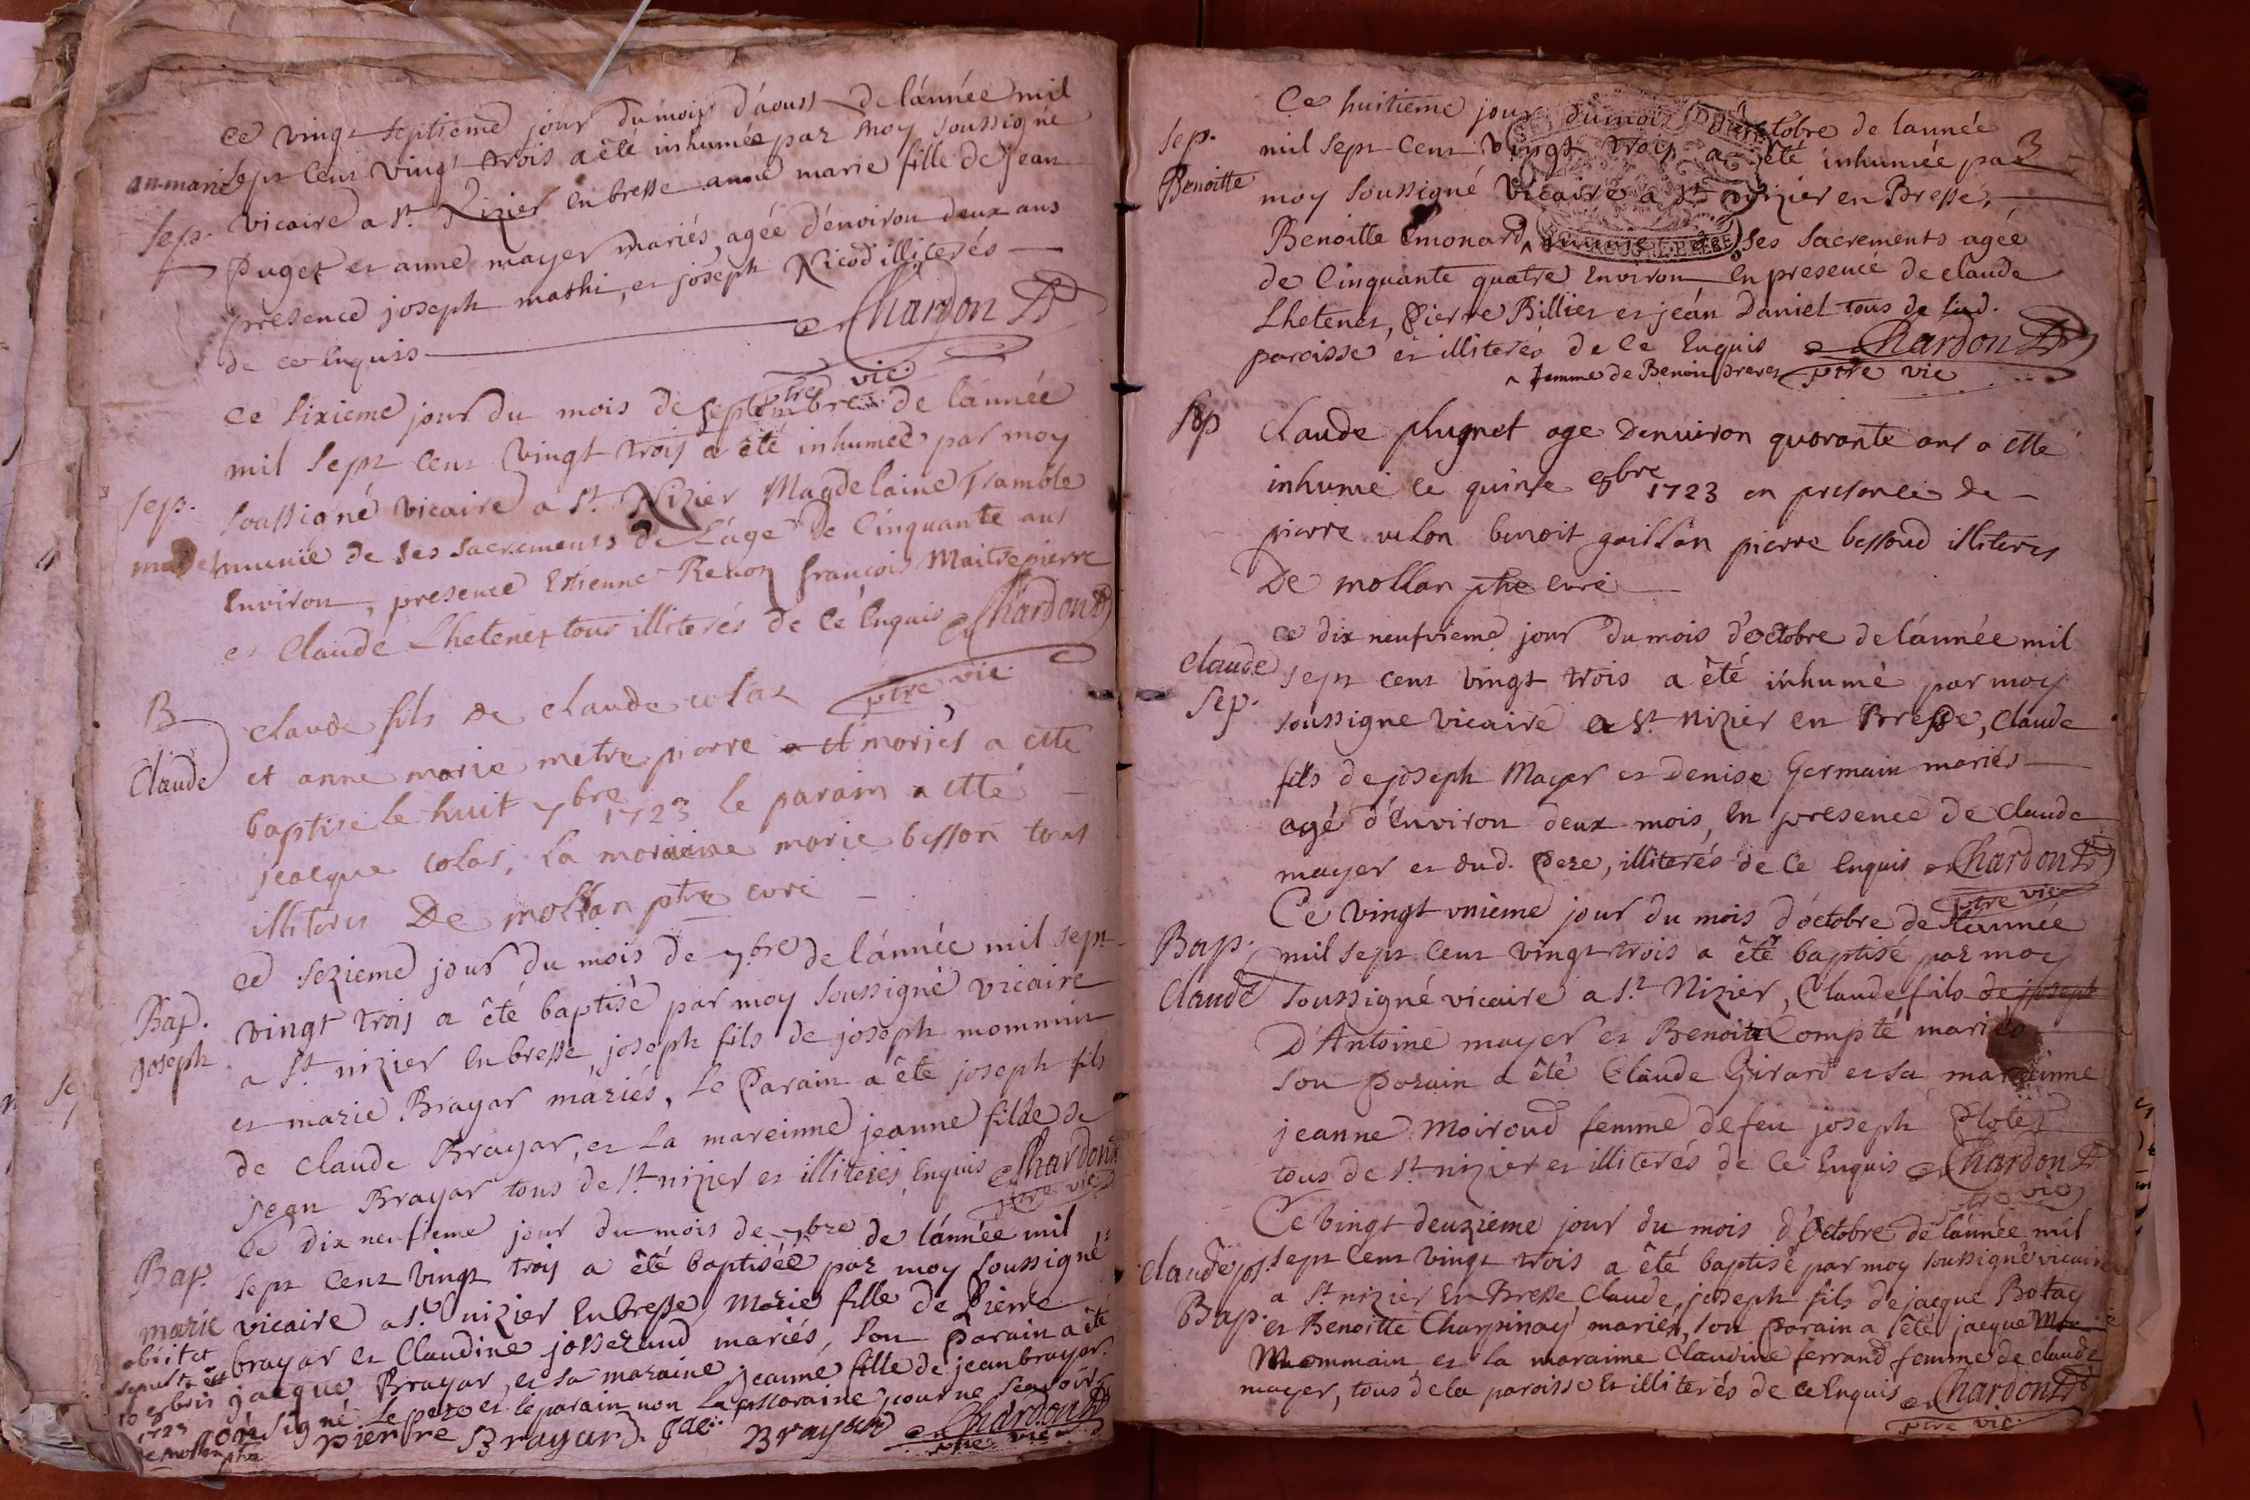 ce vingt septieme jour du mois d'aoust de lánnée mil
an-marie sept cent vingt trois a été inhumée par moy soussigné
sep. vicaire a st. Nizier en bresse anne marie fille de jean
Puget et anne mayer mariés, agée d'environ deux ans
presence joseph mathi, et joseph Nicod illiterés
de ce enquis Chardon
ptre vic.
ce sixieme jour du mois de septembre de lánnée
mil sept cent vingt trois a été inhumée par moy
sep. soussigné vicaire a st. Nizier Magdelaine Tramble
munie de ses sacrements de l'áge de cinquante ans
environ, presence Etienne Revon françois Maitrepierre
et Claude Lhetenet tous illiterés de ce enquis Chardon
ptre vic.
B
Claude
claude fils de claude colas
et anne marie metrepierre mariés a etté
baptise le huit 7bre 1723 le parain a etté
jacque colas, la maraine marie besson tous
illiteres De mollan ptre curé
ce sezieme jour du mois de 7.bre de lánnée mil sept
Bap. vingt trois a été baptisé par moy soussigné vicaire
joseph a st. nizier en bresse joseph fils de joseph mommin
et marie Brayar mariés, le Parain a été joseph fils
de claude Brayar, et la mareinne jeanne fille de
jean Brayar tous de st. nizier et illiterés enquis Chardon
ptre vic.
ce dix neufieme jour du mois de 7bre de lánnée mil
Bap. sept cent vingt trois a été baptisée par moy soussigné
marie vicaire a st. nizier en bresse, Marie fille de Pierre
obiit et brayar et Claudine josserand mariés, son parain a été
sepulta est jacque Brayar, et sa maraine jeanne fille de jean brayar.
10 8bris 1723 ón signé le pere et le parain non la maraine pour ne sçavoir
de mollan ptre pierre Brayard Jac. Brayard Chardon
ptre vic.
Ce huitieme jour du mois d'octobre de lannée
sep. mil sept cent vingt trois a été inhumée par
Benoitte moy soussigné vicaire a st nizier en Bresse,
Benoitte Emonard ^ munie de ses sacrements agée
de Cinquante quatre environ en presence de claude
Lhetenet, Pierre Billiet et jeán Daniel tous de lad.
paroisse et illiterés de ce enquis Chardon
^ femme de Benoit prevet ptre vic
sep claude plugnet age denviron quarante ans a etté
inhumé le quinse 8bre 1723 en presence de
pierre velon benoit gaillan pierre bessoud illiteres
De mollan ptre curé
ce dix neufvieme jour du mois d'octobre de lánnée mil
Claude sept cent vingt trois a été inhumé par moy
sep. soussigne vicaire a st. nizier en Bresse, Claude
fils de joseph Mayer et Denise Germain mariés
agé d'environ deux mois, en presence de Claude
mayer et dud. Pere, illiterés de ce enquis Chardon
ptre vic
Ce vingt unieme jour du mois d'octobre de lannée
Bap. mil sept cent vingt trois a été baptisé par moy
Claude soussigné vicaire a st. Nizier, Claude fils de joseph
D'Antoine mayer et Benoite Compte mariés
son parain a été Claude Girard et sa mareinne
jeanne Moiroud femme de feu joseph Plotet
tous de st. nizier et illiterés de ce enquis Chardon
ptre vic
Ce vingt deuzieme jour du mois d'octobre de lánnée mil
claude jos. sept cent vingt trois a été baptisé par moy soussigné vicaire
Bap. a st. nizier en Bresse Claude, joseph fils de jacque Botay
et Benoitte Charpinay mariés, son Parain a été jacque
Mommain et la maraine Claudine ferrand femme de claude
mayer, tous de la paroisse et illiterés de ce enquis Chardon
ptre vic.